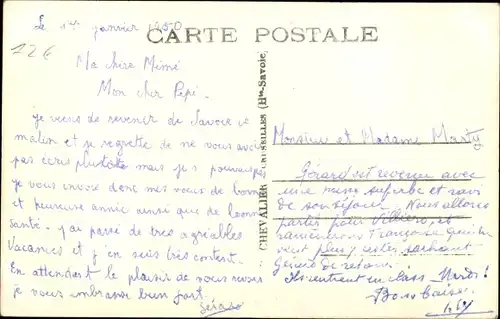 Le 1er janvier 1950
CARTE POSTALE
12€
Ma chère Mémé
Mon cher Pépé.
je viens de revenir de Savoie ce
matin et je regrette de ne vous avoir
pas écris plustot mais je pouvais pas
je vous envoie donc mes vœux de bonne
et heureuse année ainsi que de bonne
santé. J'ai passé de très agréables
Vacances et j'en suis très content.
En attendant le plaisir de vous revoir
je vous embrasse bien fort.
Gérard
CHEVALIER (Hte-Savoie)
Monsieur et Madame Marty
Gérard est revenu avec
une mine superbe et ravi
de son séjour. Nous allons
partir pour Villiers et
ramènerons Françoise qui ne
veut plus rester sachant
Gérard de retour.
Ils rentrent en class Mardi!
Bons baisers